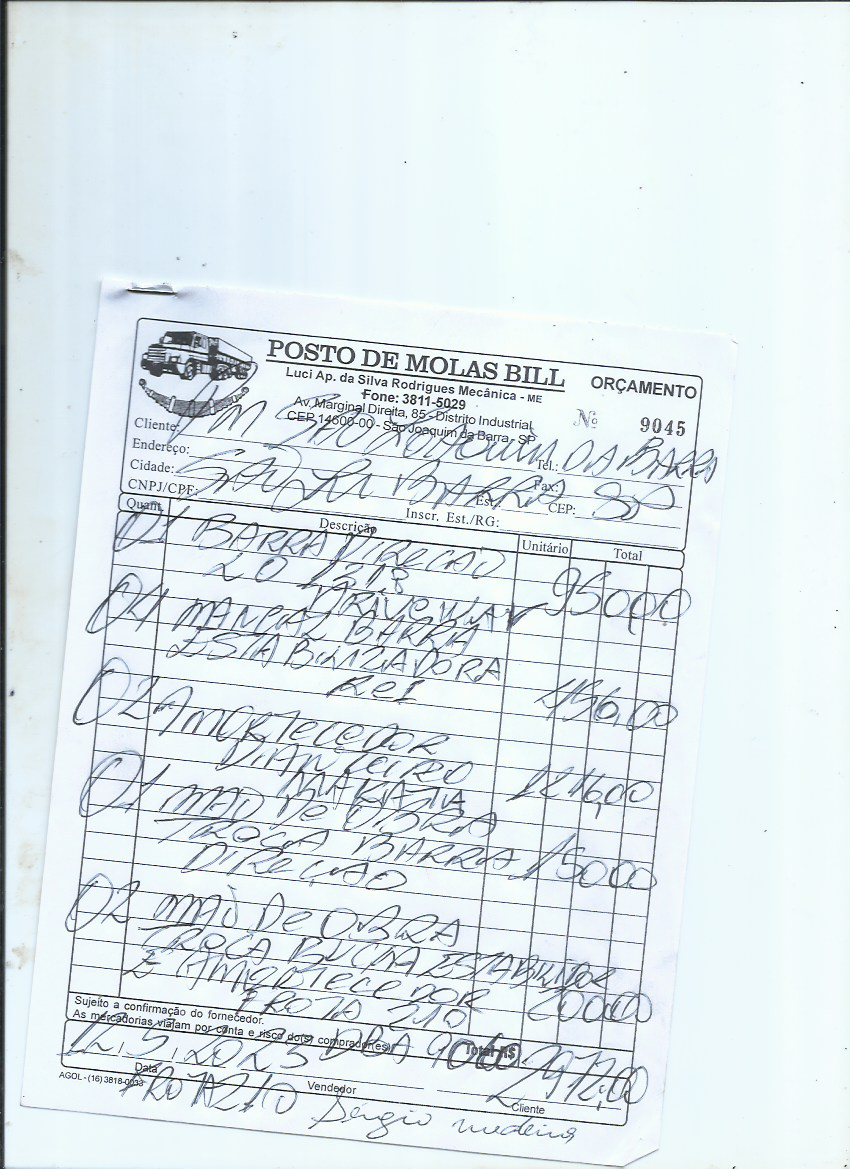 POSTO DE MOLAS BILL
ORÇAMENTO
Luci Ap. da Silva Rodrigues Mecânica - ME
Fone: 3811-5029
Av. Marginal Direita, 85 - Distrito Industrial
CEP 14600-00 - São Joaquim da Barra - SP
Nº 9045
Cliente: PM SÃO JOAQUIM DA BARRA
Endereço: Tel.:
Cidade: BARRA Fax: SP
CNPJ/CPF: Inscr. Est./RG: Est. CEP:
Quant. Descrição Unitário Total
01 BARRA DIREÇÃO
20 1318 950,00
04 MANCAL BARRA
ESTABILIZADORA
REI 456,00
02 AMORTECEDOR
DIANTEIRO
1216,00
01 MÃO DE OBRA
TROCA BARRA 150,00
DIREÇÃO
02 MÃO DE OBRA
TROCA BUCHA ESTABILIZADOR
E AMORTECEDOR
FROTA 210 200,00
Sujeito a confirmação do fornecedor.
As mercadorias viajam por conta e risco do(s) comprador(es)
Total R$ 2972,00
12,5,2023 DBA
Data Vendedor Cliente
AGOL - (16) 3818-0033
FROTA 210 Sérgio medeiros